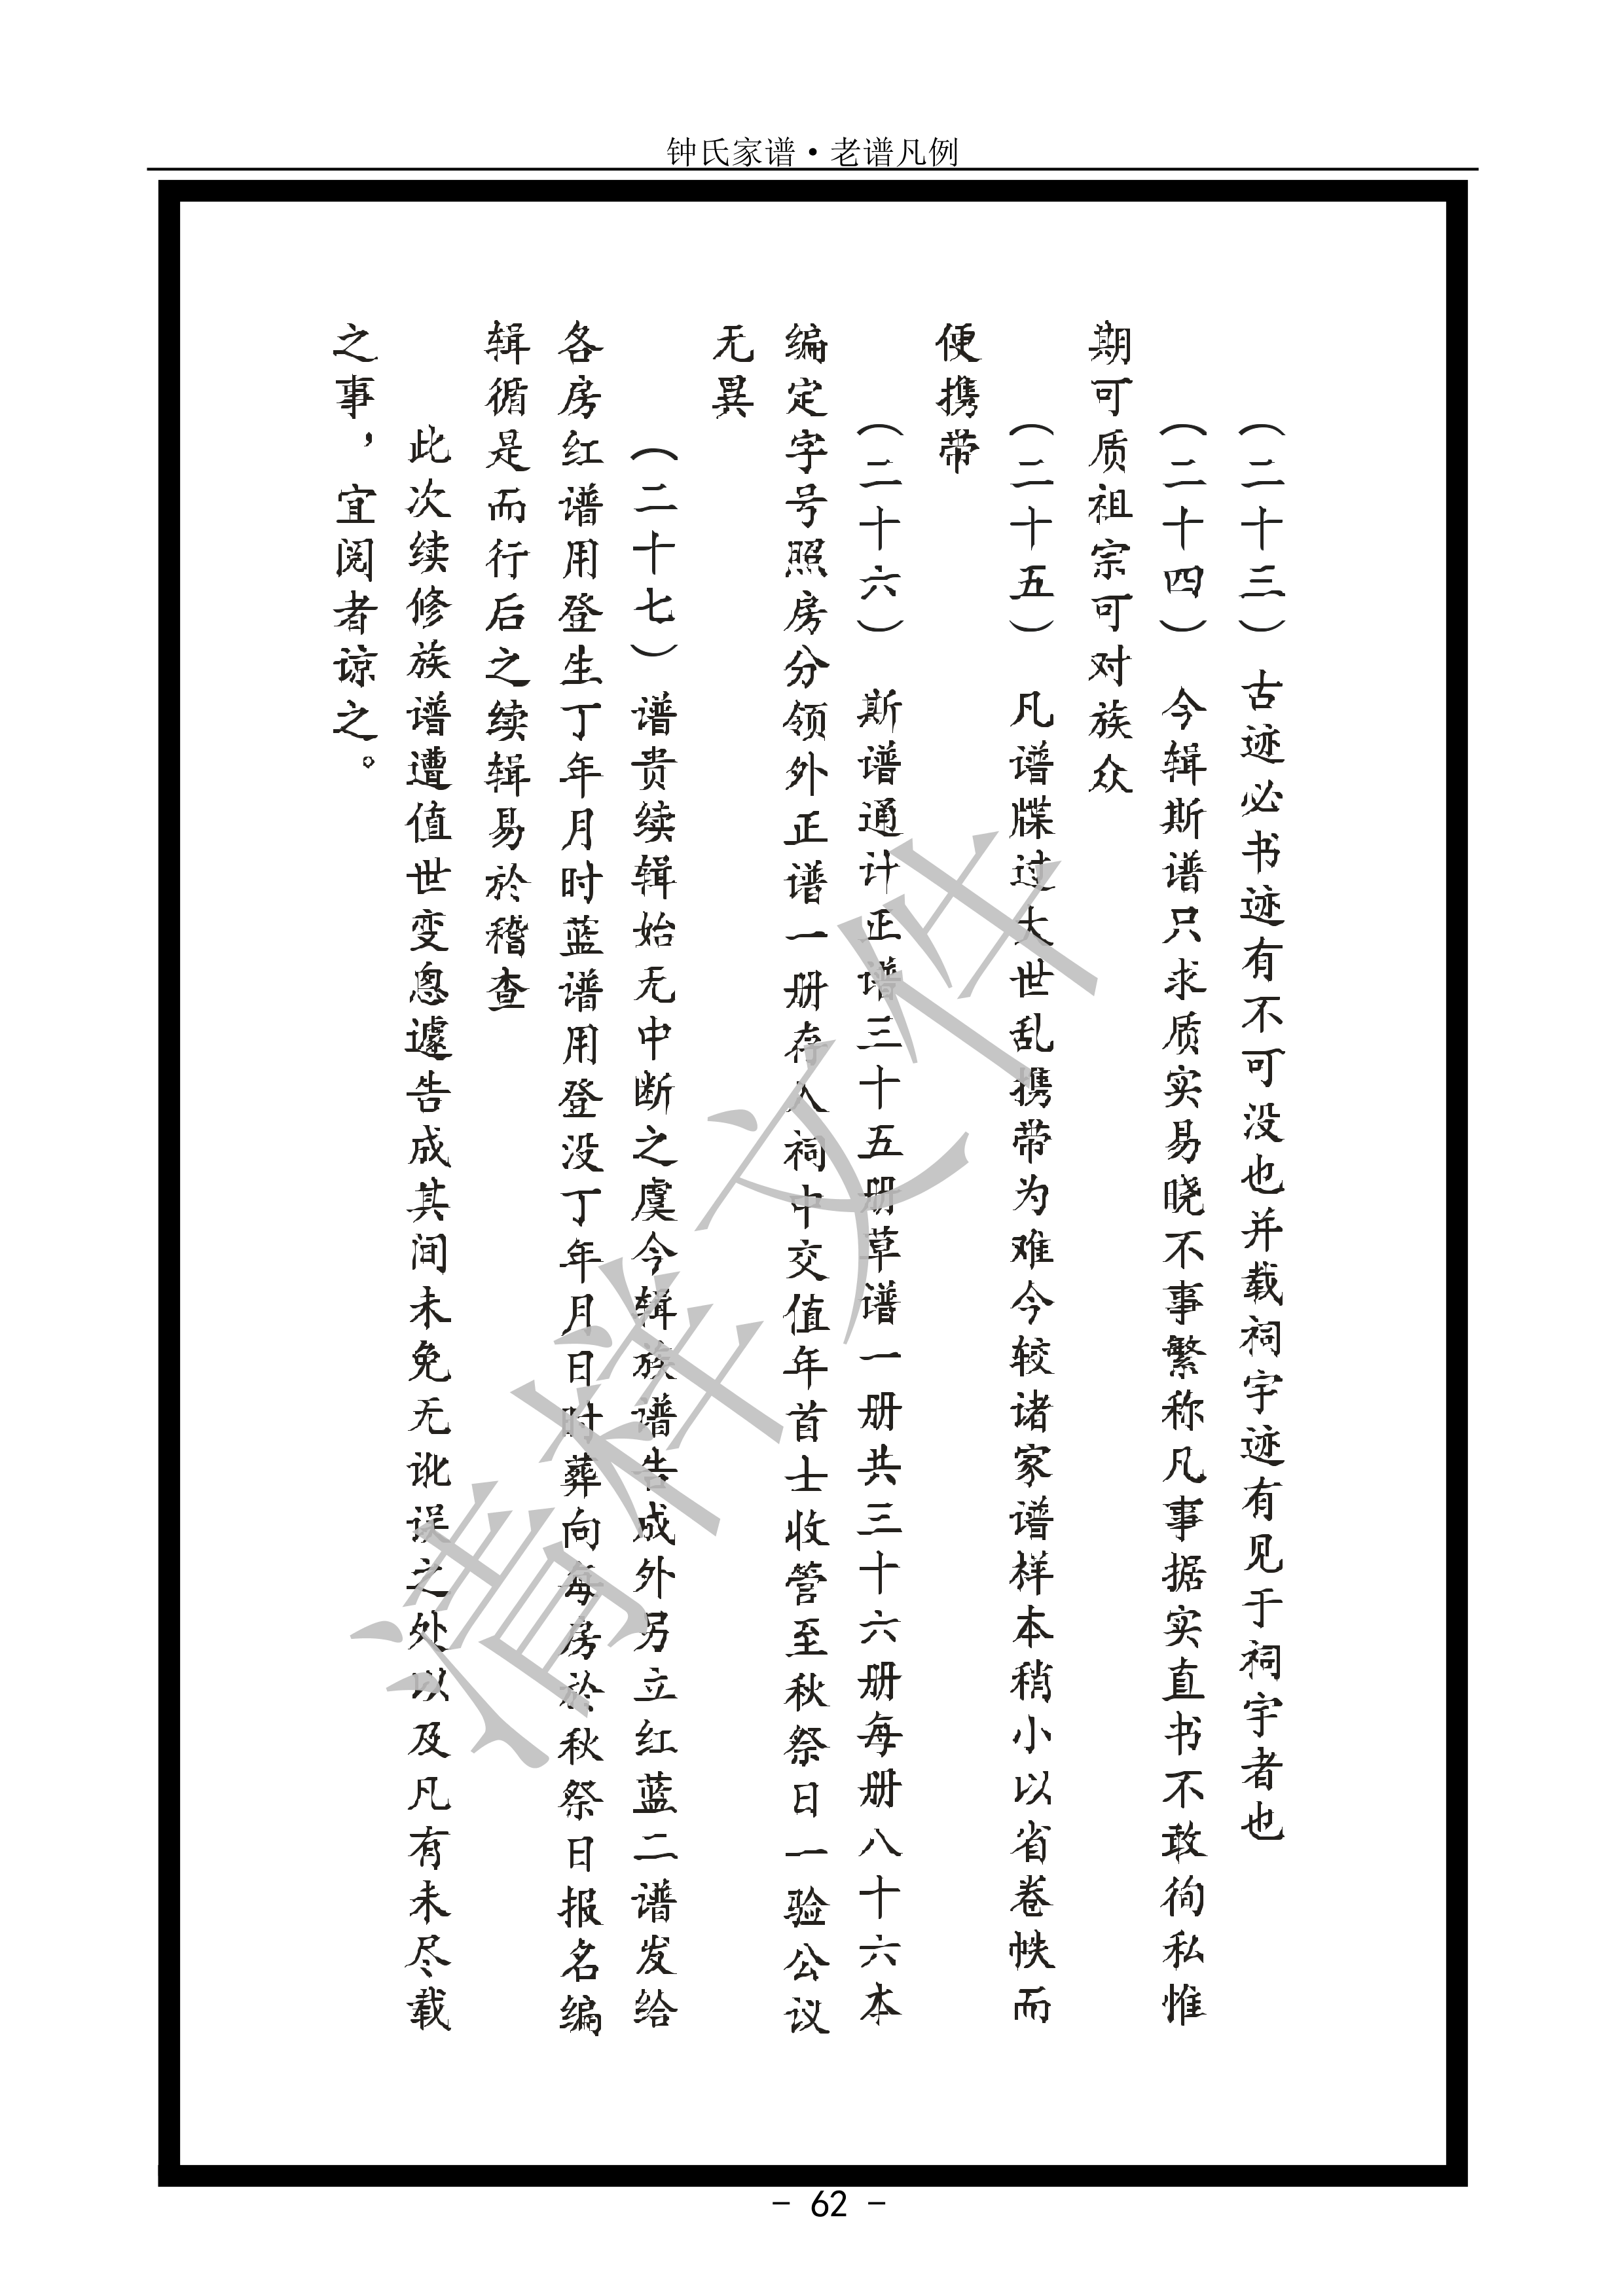 钟氏家谱·老谱凡例
（二十三）古迹必书迹有不可没也并载祠宇迹有见于祠宇者也
（二十四）今辑斯谱只求质实易晓不事繁称凡事据实直书不敢徇私惟
期可质祖宗可对族众
（二十五）凡谱牒过大世乱携带为难今较诸家谱样本稍小以省卷帙而
便携带
（二十六）斯谱通计正谱三十五册草谱一册共三十六册每册八十六本
编定字号照房分领外正谱一册存入祠中交值年首士收管至秋祭日一验公议
无異
（二十七）谱贵续辑始无中断之虞今辑族谱告成外另立红蓝二谱发给
各房红谱用登生丁年月时蓝谱用登没丁年月日时葬向每房於秋祭日报名编
辑循是而行后之续辑易於稽查
此次续修族谱遭值世变恖遽告成其间未免无讹误之处以及凡有未尽载
之事，宜阅者谅之。
清样文件
- 62 -